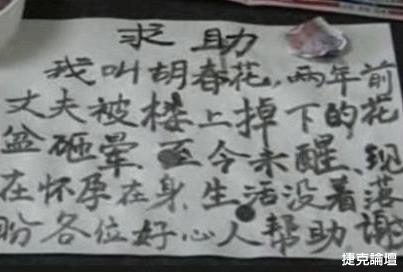 求助
我叫胡春花,两年前
丈夫被楼上掉下的花
盆砸晕 至今未醒、现
在怀孕在身,生活没着落
盼各位好心人帮助谢
捷克論壇